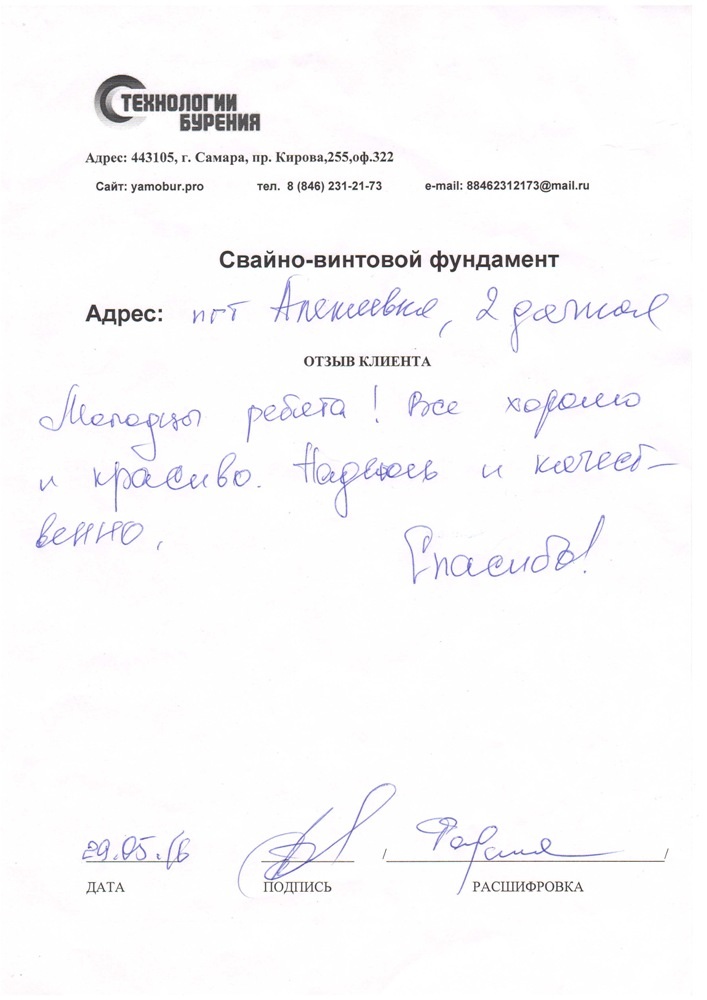 ТЕХНОЛОГИИ
БУРЕНИЯ
Адрес: 443105, г. Самара, пр. Кирова,255,оф.322
Сайт: yamobur.pro тел. 8 (846) 231-21-73 e-mail: 88462312173@mail.ru
Свайно-винтовой фундамент
Адрес: пгт Алексеевка, 2 дачная
ОТЗЫВ КЛИЕНТА
Молодцы ребята! Все хорошо
и красиво. Надеюсь и качест-
венно.
Спасибо!
29.05.16 / /
ДАТА ПОДПИСЬ РАСШИФРОВКА